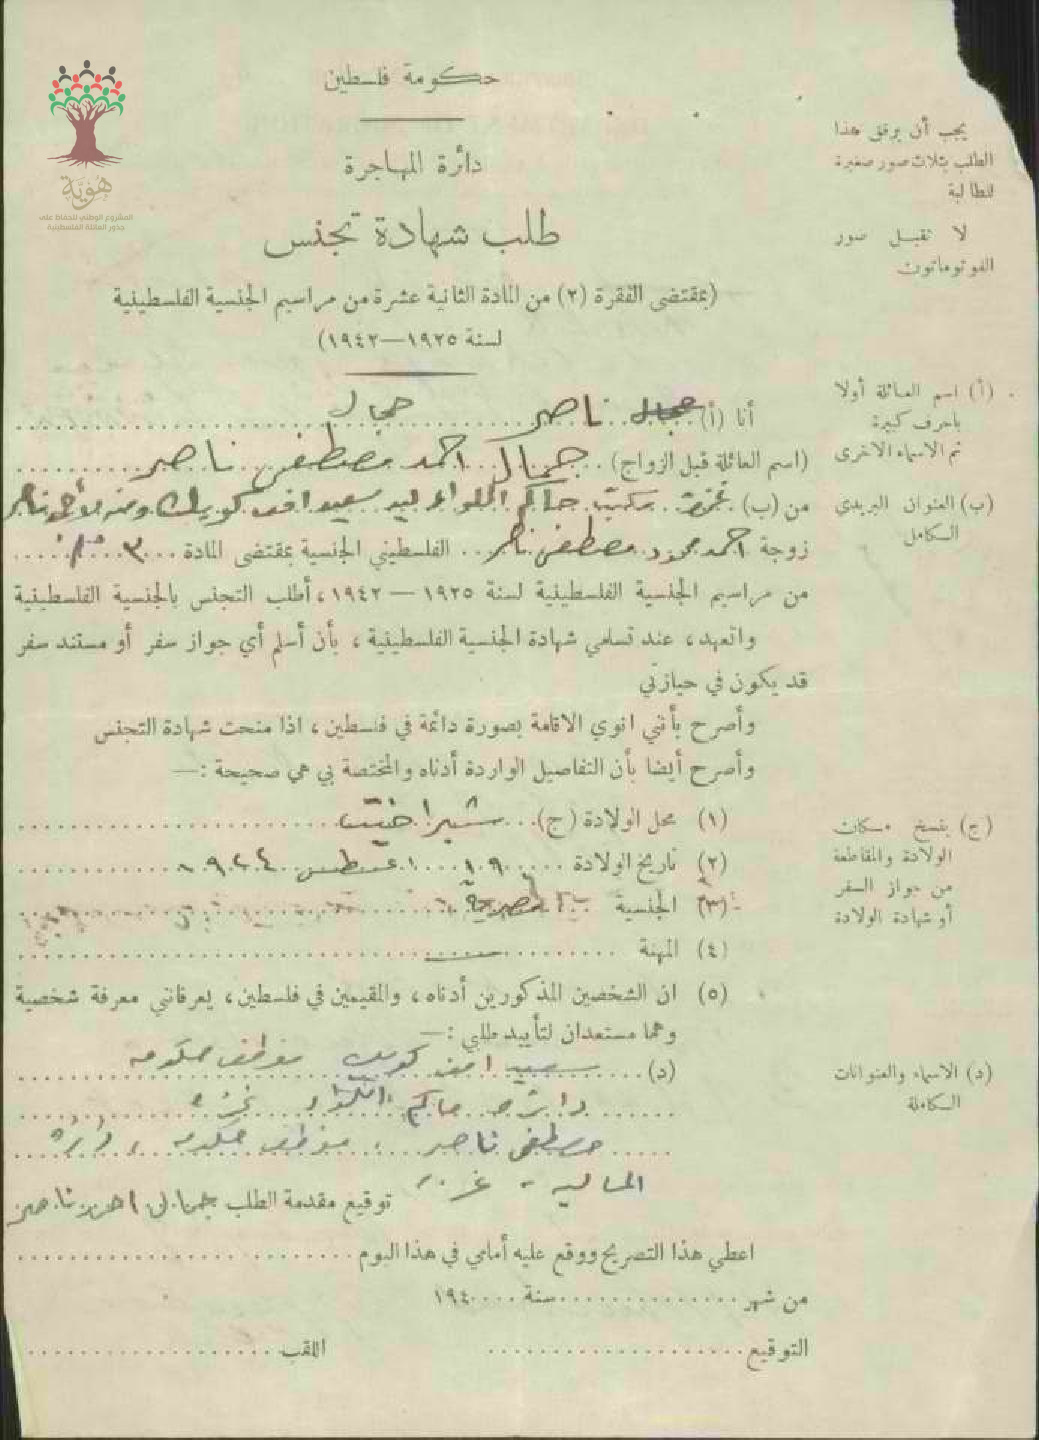 هوية
المشروع الوطني للحفاظ على
جذور العائلة الفلسطينية
حكومة فلسطين
دائرة المهاجرة
طلب شهادة تجنس
(بمقتضى الفقرة (٢) من المادة الثانية عشرة من مراسيم الجنسية الفلسطينية
لسنة ١٩٢٥—١٩٤٢)
يجب أن يرفق هذا
الطلب بثلاث صور صغيرة
للطالبة
لا تقبل صور
الفوتوماتون
(أ) اسم العائلة أولا
باحرف كبيرة
ثم الاسماء الاخرى
(ب) العنوان البريدي
الكامل
أنا (أ) ناصر جمال
(اسم العائلة قبل الزواج) جمال احمد مصطفى ناصر
من (ب) غزة مكتب حاكم اللواء ليد سعيد افندي
زوجة احمد محمود مصطفى ناصر الفلسطيني الجنسية بمقتضى المادة ٣
من مراسيم الجنسية الفلسطينية لسنة ١٩٢٥ — ١٩٤٢، أطلب التجنس بالجنسية الفلسطينية
واتعهد، عند تسلمي شهادة الجنسية الفلسطينية، بأن أسلم أي جواز سفر أو مستند سفر
قد يكون في حيازتي
وأصرح بأنني انوي الاقامة بصورة دائمة في فلسطين، اذا منحت شهادة التجنس
وأصرح أيضا بأن التفاصيل الواردة أدناه والمختصة بي هي صحيحة :—
(١) محل الولادة (ج) شبراخيت
(٢) تاريخ الولادة اغسطس
(٣) الجنسية المصرية
(٤) المهنة —
(ج) بفسخ مكان
الولادة والمقاطعة
من جواز السفر
أو شهادة الولادة
(٥) ان الشخصين المذكورين أدناه، والمقيمين في فلسطين، يعرفانني معرفة شخصية
وهما مستعدان لتأييد طلبي :—
(د) سعيد موظف حكومه
دائرة حاكم اللواء غزه
مصطفى ناصر، موظف حكومه، دائرة
الماليه - غزه
(د) الاسماء والعنوانات
الكاملة
توقيع مقدمة الطلب جمال احمد ناصر
اعطي هذا التصريح ووقع عليه أمامي في هذا اليوم
من شهر سنة ١٩٤
التوقيع اللقب